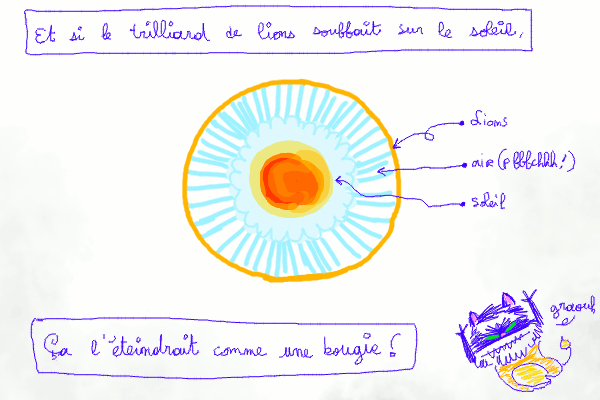 Et si le trilliard de lions soufflait sur le soleil,
Lions
air (pfffchhh!)
soleil
Ça l'éteindrait comme une bougie !
graouh